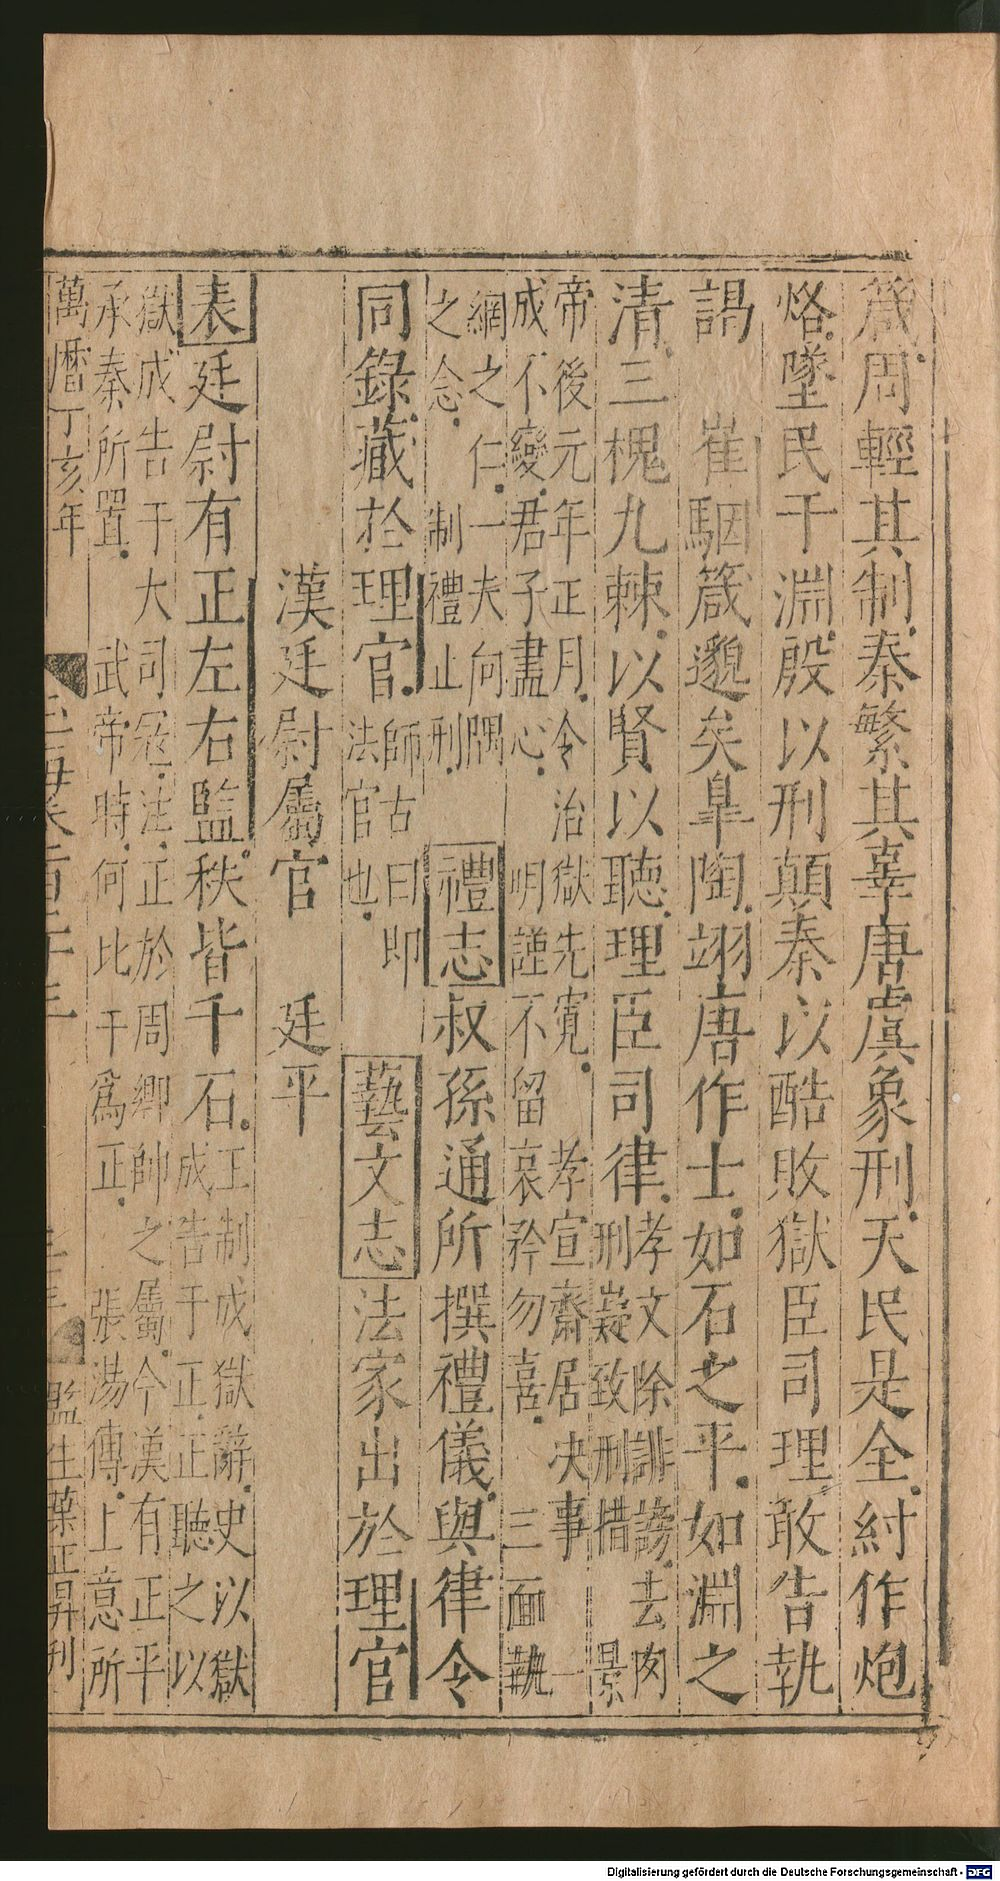 箴周輕其制秦繁其辜唐虞象刑天民是全紂作炮
烙墜民于淵殷以刑顛秦以酷敗獄臣司理敢告執
謁 崔駰箴邈矣臯陶翊唐作士如石之平如淵之
清三槐九棘以賢以聽理臣司律孝文除誹謗去肉
刑嶷致刑措 景
帝後元年正月令治獄先寛 孝宣齋居决事 一
成不變君子盡心 明謹不留哀矜勿喜 三面執
網之仁一夫向隅
之念 制禮止刑 禮志叔孫通所撰禮儀與律令
同錄藏於理官師古曰即
法官也 藝文志法家出於理官
漢廷尉屬官 廷平
表廷尉有正左右監秩皆千石王制成獄辭史以獄
成告于正正聽之以
獄成告于大司寇注正於周鄉帥之屬今漢有正平
承秦所置 武帝時何比干爲正 張湯傳上意所
萬曆丁亥年 玉海卷一百二十三 監生葉正昇刋
Digitalisierung gefördert durch die Deutsche Forschungsgemeinschaft - DFG